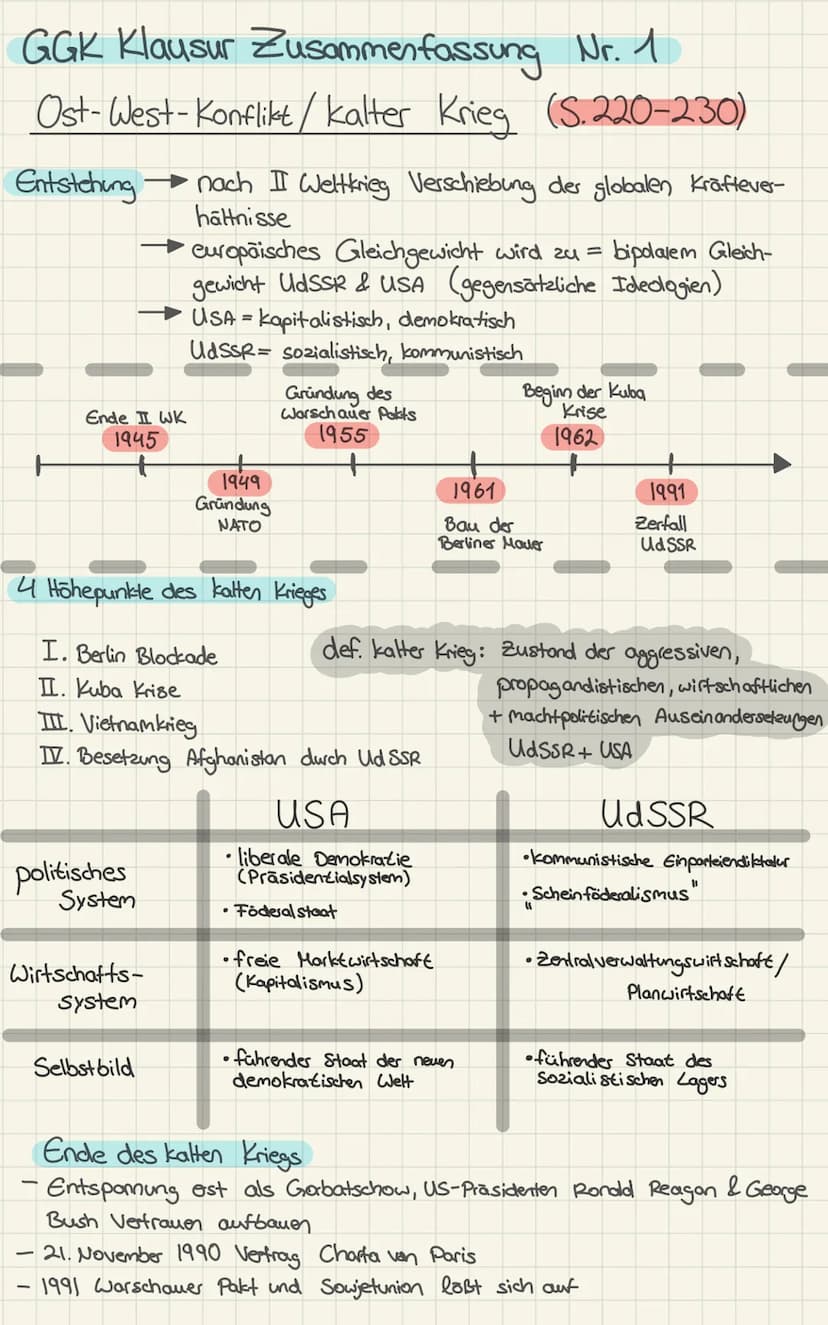 GGK Klausur Zusammenfassung Nr. 1
Ost-West-Konflikt/kalter Krieg (S.220-230)
Entstehung → nach II Weltkrieg Verschiebung der globalen Kräftever-
hältnisse
→ europäisches Gleichgewicht wird zu = bipolarem Gleich-
gewicht UdSSR & USA (gegensätzliche Ideologien)
→ USA = kapitalistisch, demokratisch
UdSSR = sozialistisch, kommunistisch
Ende II WK
1945
1949
Gründung
NATO
Gründung des
Warschauer Pakts
1955
1961
Bau der
Berliner Mauer
Beginn der Kuba
Krise
1962
1991
Zerfall
UdSSR
4 Höhepunkte des kalten Krieges
I. Berlin Blockade
II. Kuba Krise
III. Vietnamkrieg
IV. Besetzung Afghanistan durch UdSSR
def. kalter Krieg: Zustand der aggressiven,
propagandistischen, wirtschaftlichen
+ machtpolitischen Auseinandersetzungen
UdSSR + USA
USA
UdSSR
politisches
System
• liberale Demokratie
(Präsidentialsystem)
• Föderalstaat
• kommunistische Einparteiendiktatur
• „Scheinföderalismus"
Wirtschafts-
system
• freie Marktwirtschaft
(Kapitalismus)
• Zentralverwaltungswirtschaft/
Planwirtschaft
Selbstbild
• führender Staat der neuen
demokratischen Welt
• führender Staat des
Sozialistischen Lagers
Ende des kalten Kriegs
- Entspannung erst als Gorbatschow, US-Präsidenten Ronald Reagan & George
Bush Vertrauen aufbauen
- 21. November 1990 Vertrag Charta von Paris
- 1991 Warschauer Pakt und Sowjetunion lößt sich auf